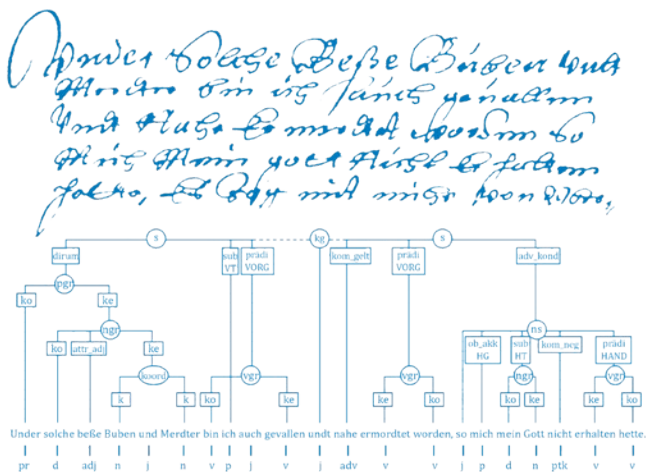 Vnder solche Beße Buben vndt
Merder bin ich auch gevallen
Vndt Nahe Er mordet worden so
Mich Mein gott Nicht Er halten
hette,
s kg s
dirum sub VT prädi VORG kom_gelt prädi VORG adv_kond
pgr
ko ke
ngr ns
ko attr_adj ke ob_akk HG sub HT kom_neg prädi HAND
koord vgr vgr ngr vgr
k k ko ke ke ko ko ke ke ko
Under solche beße Buben und Merdter bin ich auch gevallen undt nahe ermordtet worden, so mich mein Gott nicht erhalten hette.
pr d adj n j n v p j v j adv v v j p d n ptk v v